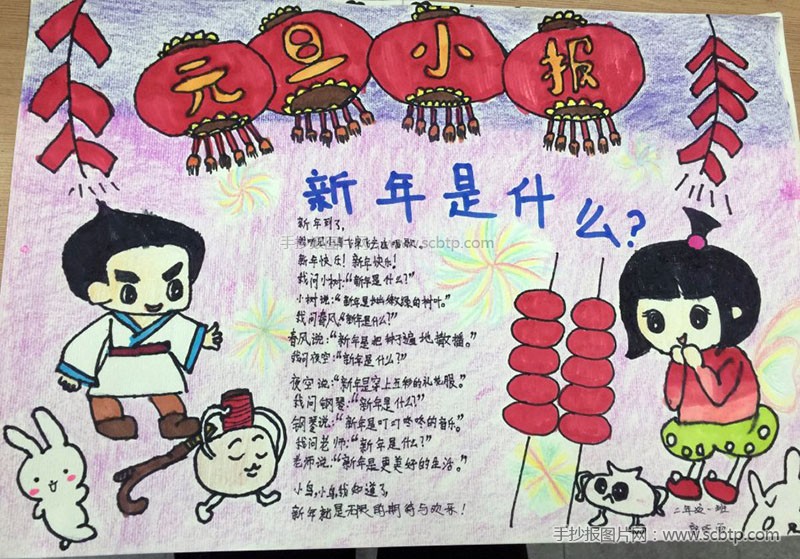 元旦小报
新年是什么?
新年到了,
新年快乐!新年快乐!
我问小树:“新年是什么?”
小树说:“新年是抽出嫩绿的树叶。”
我问春风:“新年是什么?”
春风说:“新年是把种子遍地撒播。”
我问夜空:“新年是什么?”
夜空说:“新年是穿上五彩的礼花服。”
我问钢琴:“新年是什么?”
钢琴说:“新年是叮叮咚咚的音乐。”
我问老师:“新年是什么?”
老师说:“新年是更美好的生活。”
小鸟,小鸟我知道了,
新年就是无限的期待与欢乐!
二年级一班
手抄报图片网 www.scbtp.com
手抄报图片网:www.scbtp.com